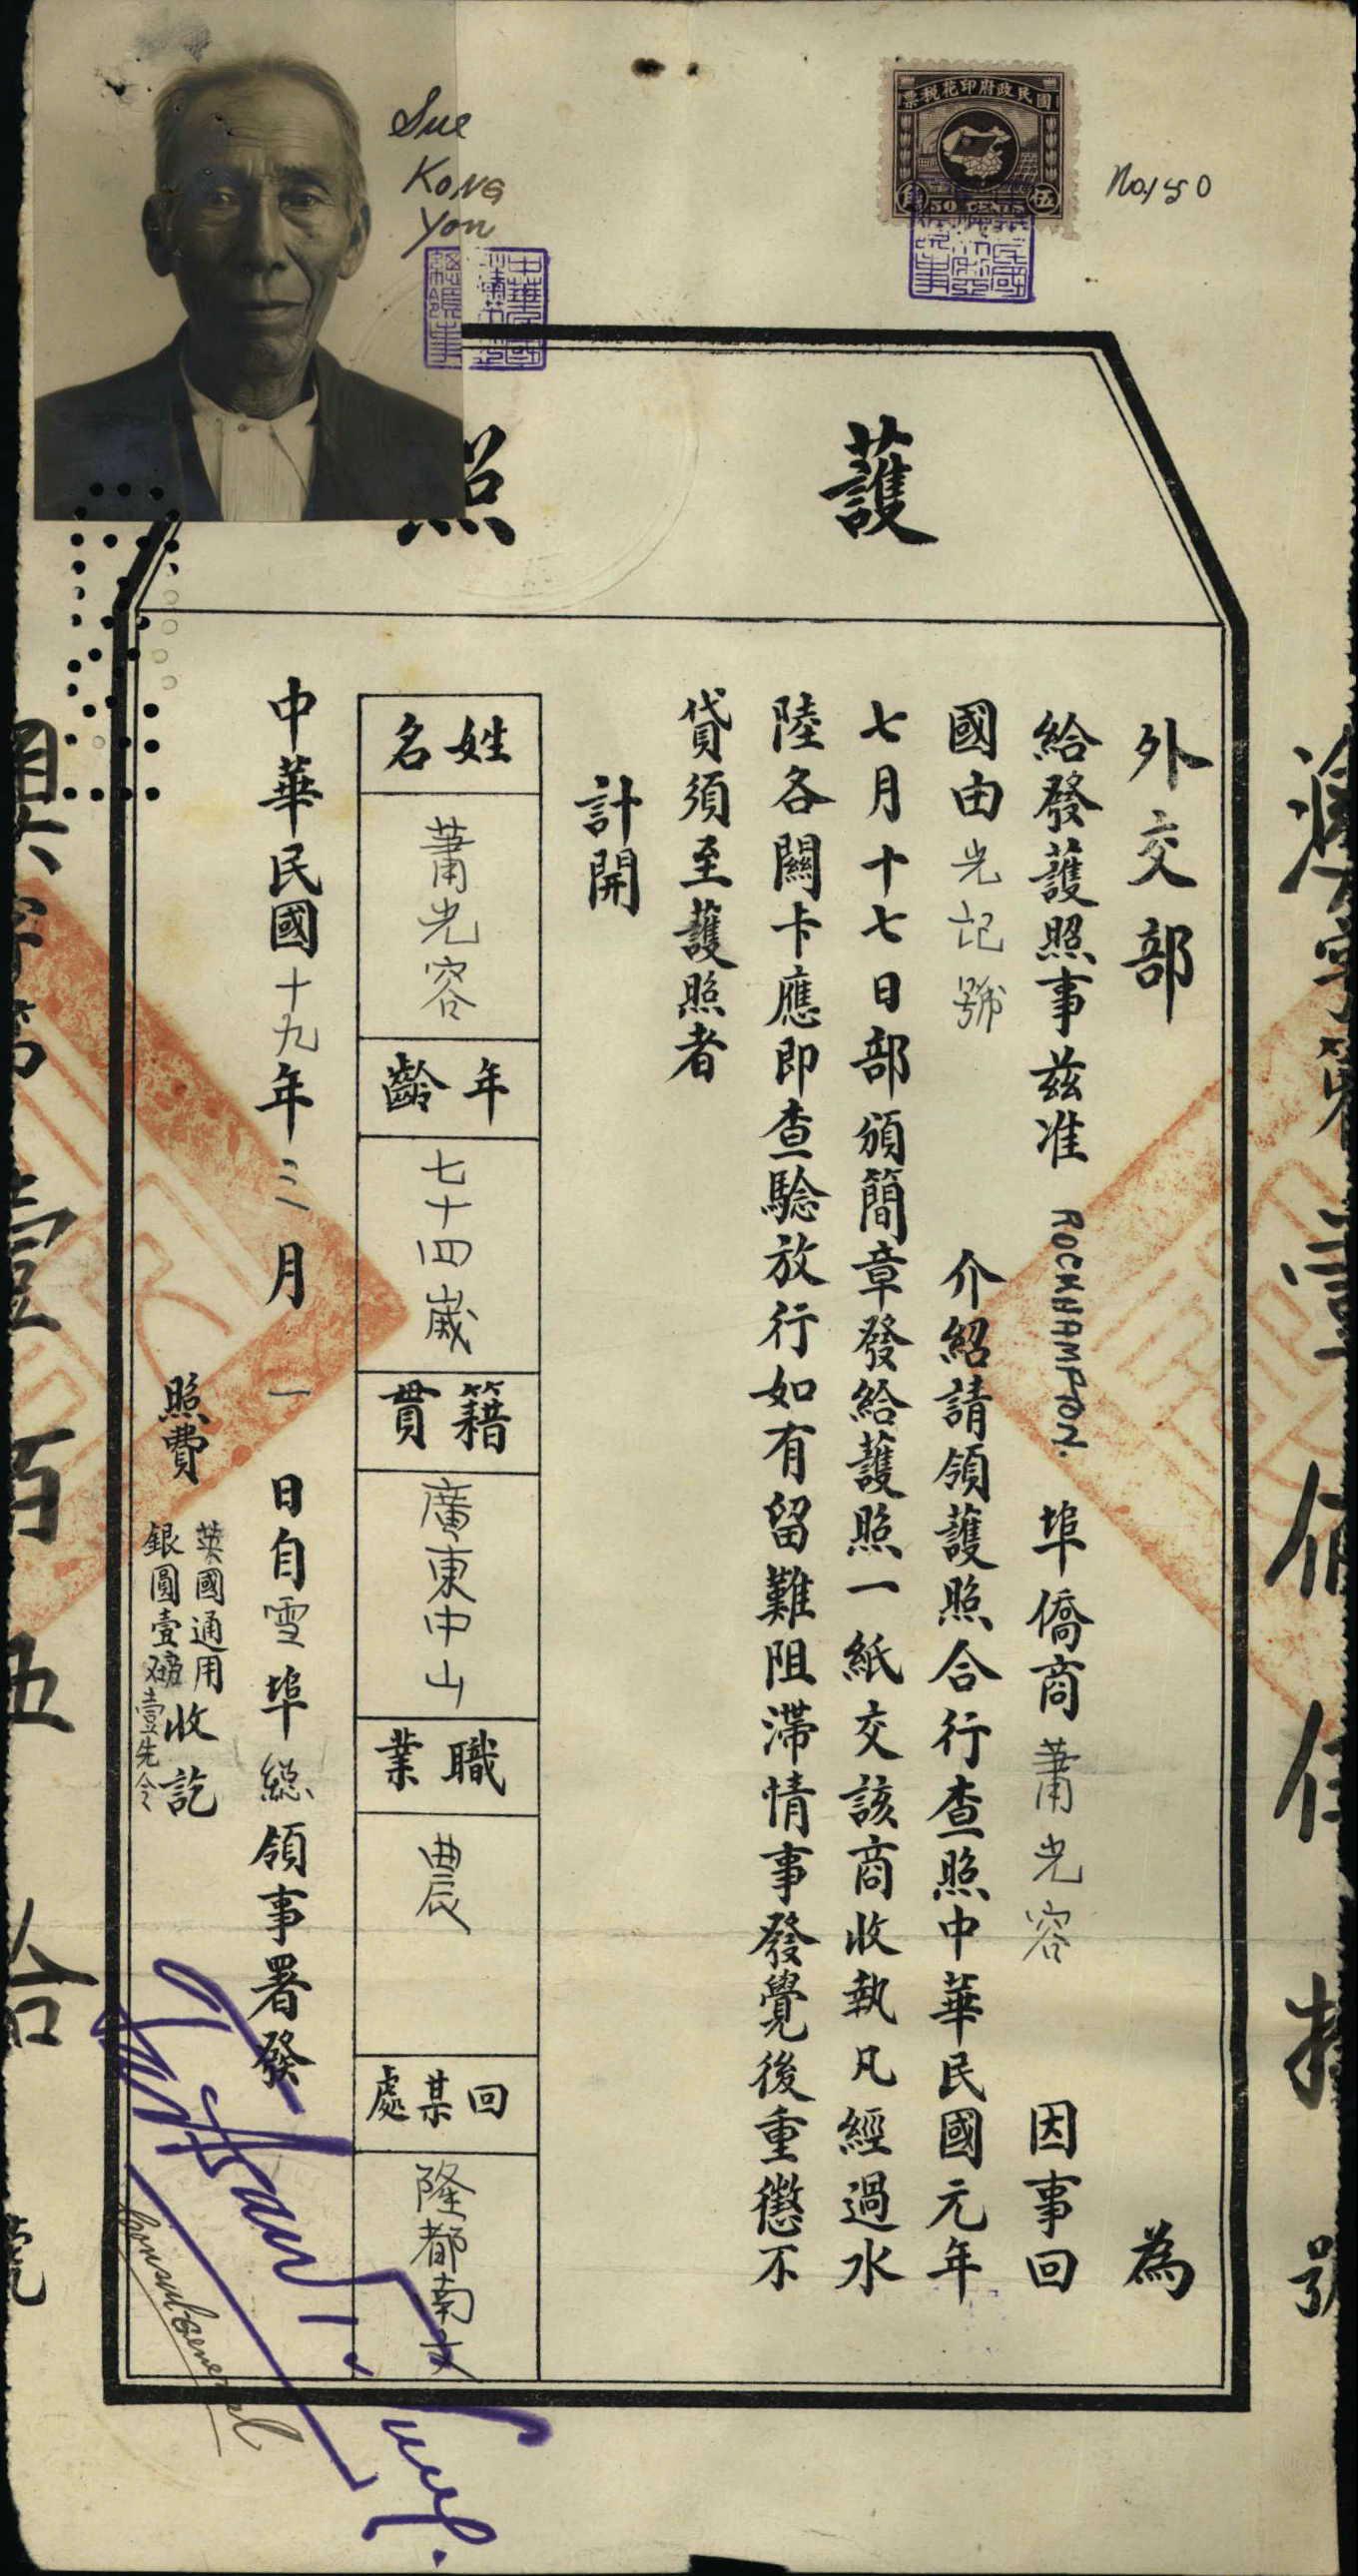 Sue
Kong
Yon
國民政府印花稅票
伍角
50 CENTS
No. 150
護照
外交部 為
給發護照事茲准 ROCKHAMPTON. 埠僑商 蕭光容 因事回
國由 光記號 介紹請領護照合行查照中華民國元年
七月十七日部頒簡章發給護照一紙交該商收執凡經過水
陸各關卡應即查驗放行如有留難阻滯情事發覺後重懲不
貸須至護照者
計開
姓名
蕭光容
年齡
七十四歲
籍貫
廣東中山
職業
農
回某處
隆都南文
中華民國十九年三月一日自雪埠總領事署發
照費 英國通用
銀圓壹磅壹先令 收訖
Consul General
字第壹百五拾號